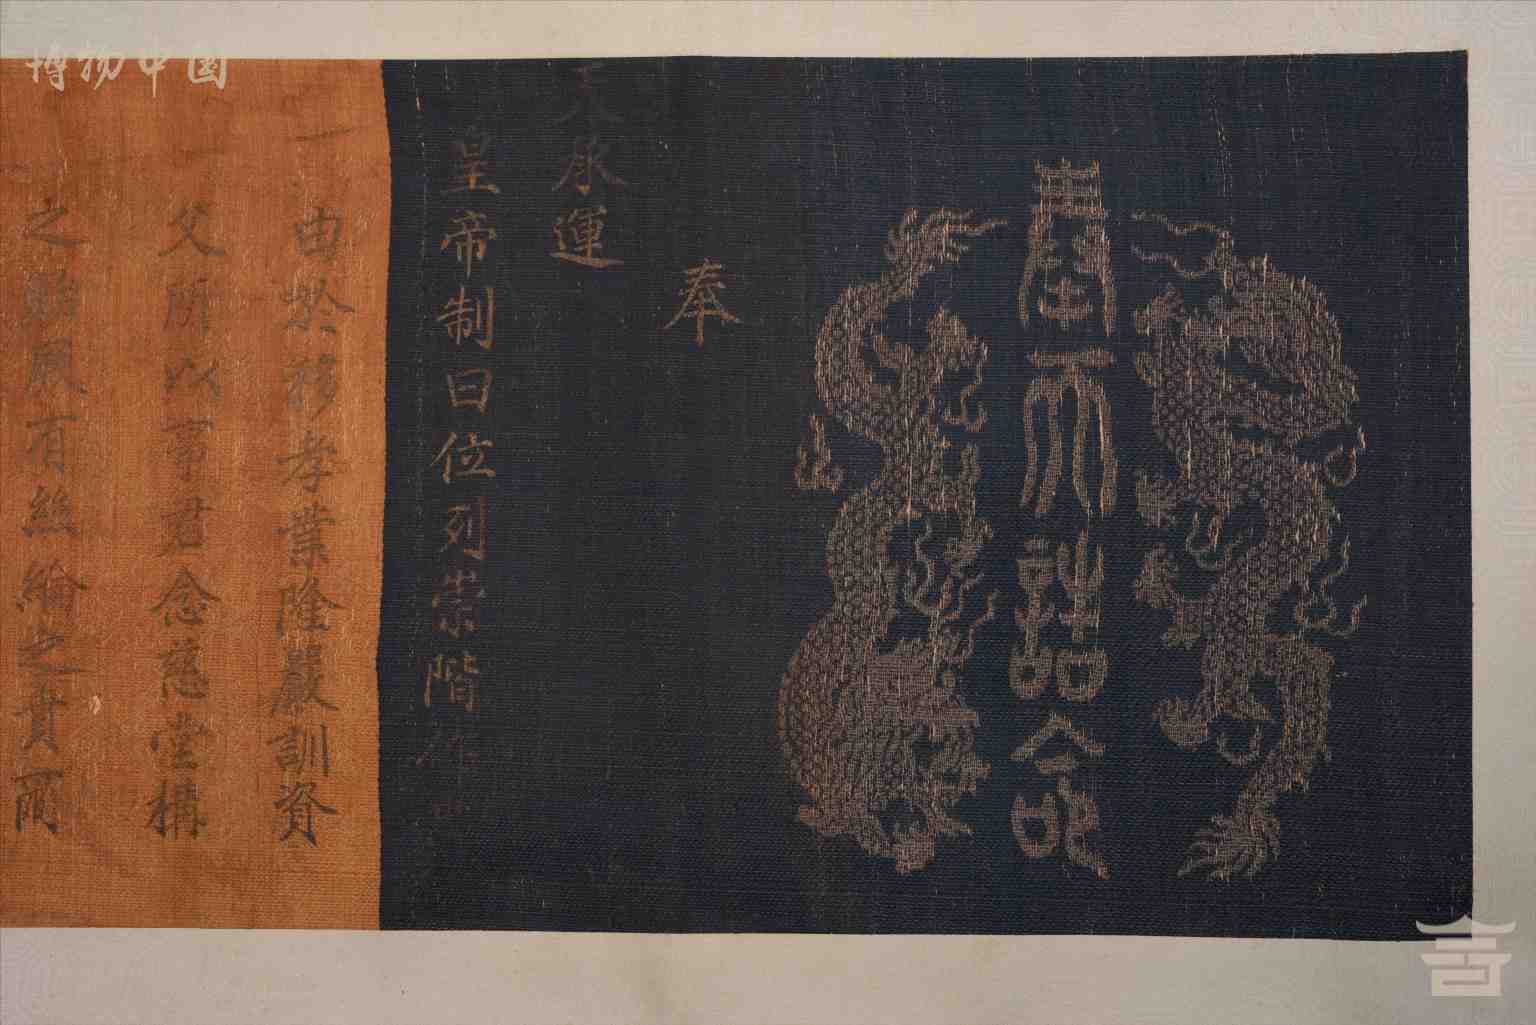 奉天誥命
奉
天承運
皇帝制曰位列崇階
由於移孝業隆嚴訓資
父所以事君念慈堂構
之貽厥有絲綸之賁爾
博物中国